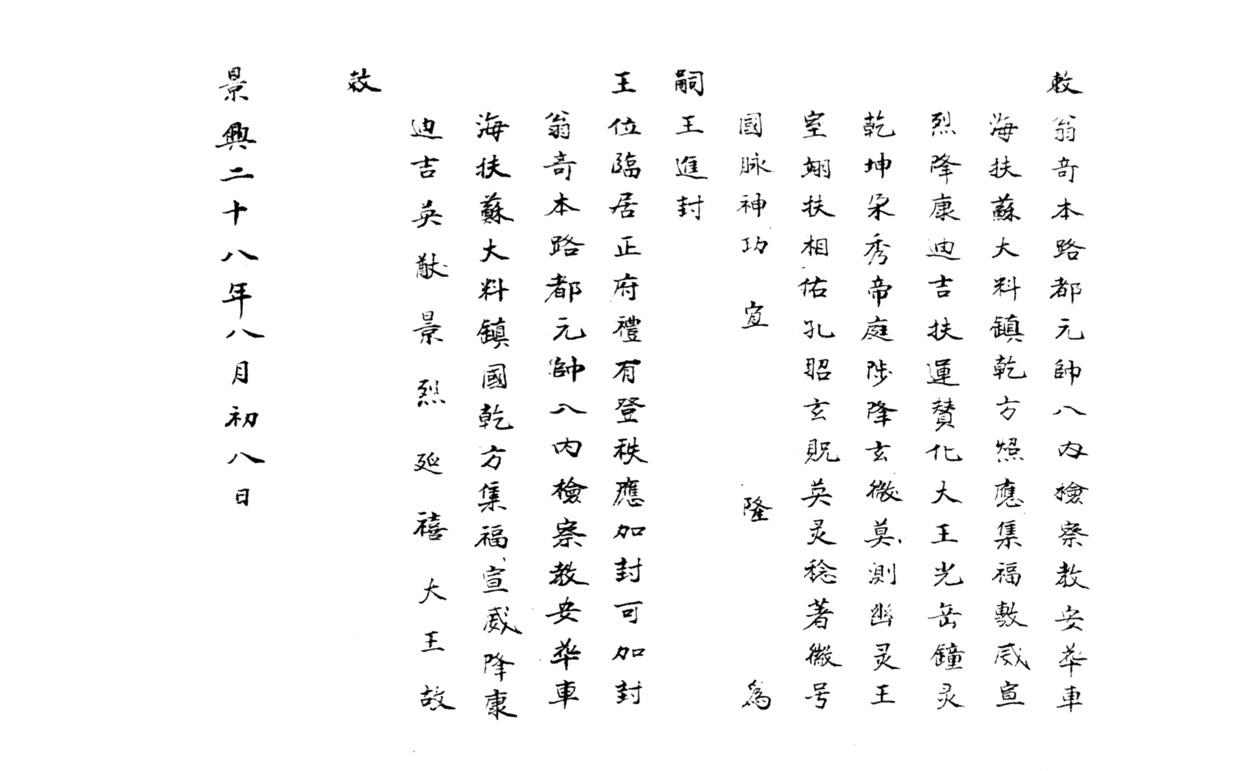 敕翁竒本路都元帥八内檢察教安華車
海扶蘇大料鎮乾方照應集福敷威宣
烈降康迪吉扶運賛化大王光岳鐘灵
乾坤朵秀帝庭陟降玄微莫測幽灵王
室翊扶相佑孔昭玄貺英灵稔著徽号
國脉神功宜隆為
嗣王進封
王位臨居正府禮有登秩應加封可加封
翁竒本路都元帥八内檢察教安華車
海扶蘇大料鎮國乾方集福宣威降康
迪吉英猷景烈延禧大王故
敕
景興二十八年八月初八日